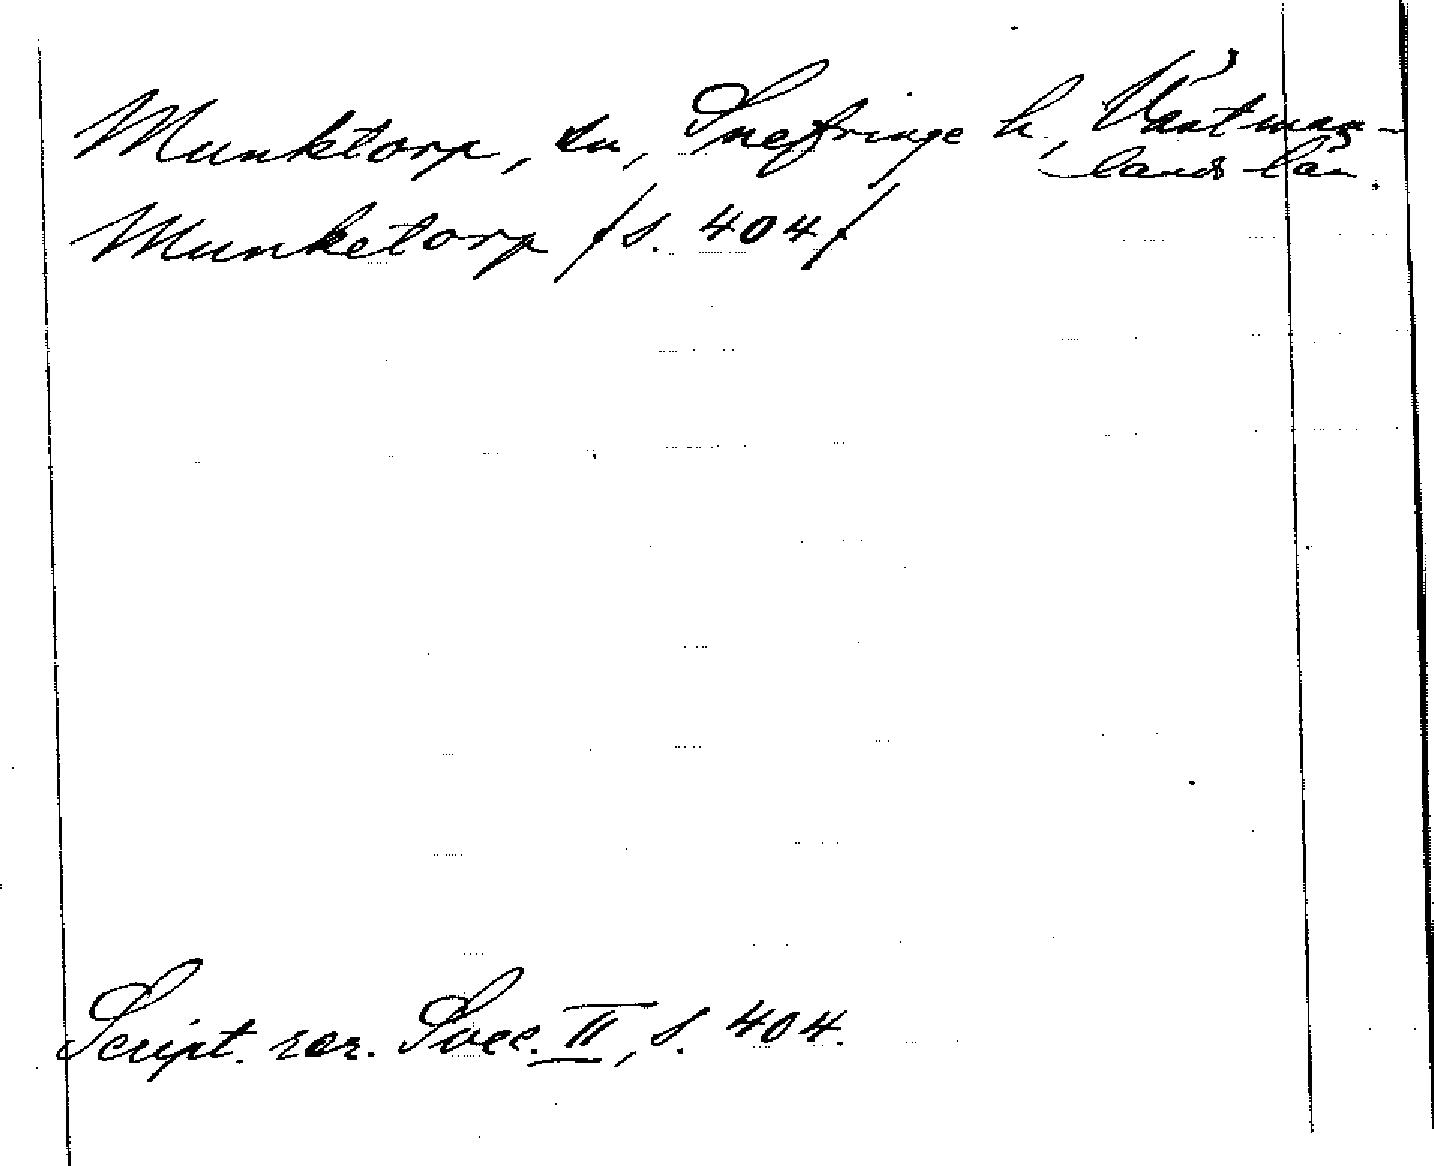 Munktorp, sn, Snefringe h, Västman-
lands län.
Munketorp /s. 404/
Script. rer. Svec. II, s. 404.